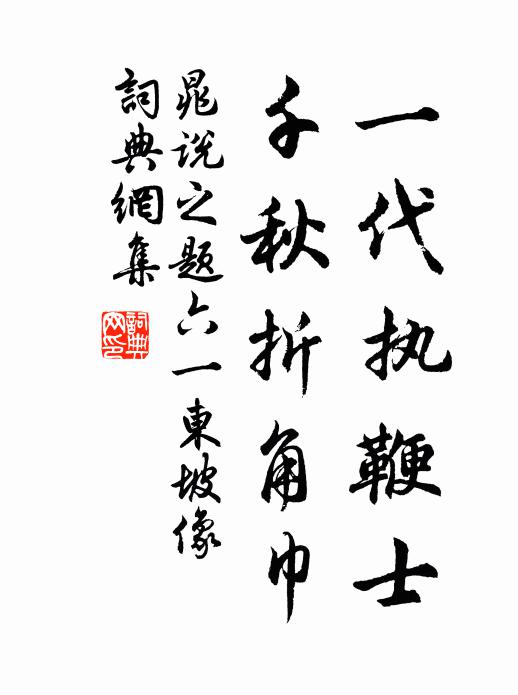 一代执鞭士
千秋折角巾
晁说之题六一東坡像
詞典網集
詞典网印